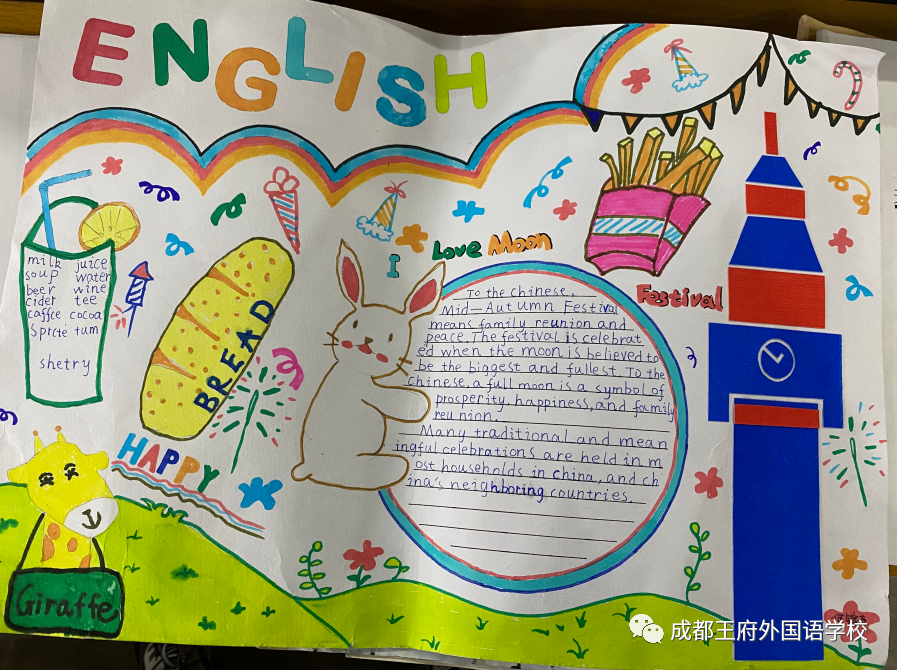 ENGLISH
milk juice
soup water
beer wine
cider tee
caffee cocoa
Sprete tum
shetry
BREAD
HAPPY
Giraffe
I Love Moon
Festival
To the chinese,
Mid-Autumn Festival
means family reunion and
peace. The festival is celebrat
ed when the moon is believed to
be the biggest and fullest. To the
chinese, a full moon is a symbol of
prosperity, happiness, and family
reunion.
Many traditional and mean
ingful celebrations are held in m
ost households in china, and ch
ina's neighboring countries.
成都王府外国语学校